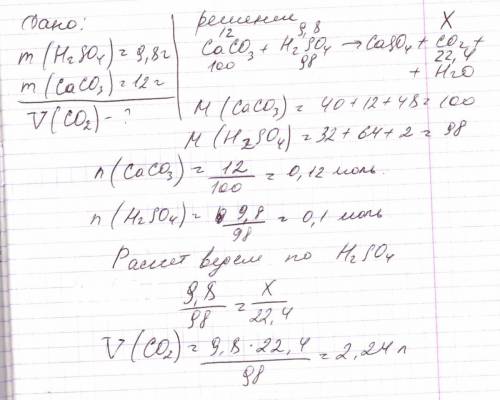 Дано:
m(H₂SO₄)=9,8г
m(CaCO₃)=12г
V(CO₂)-?
решение
12 9,8 X
CaCO₃+H₂SO₄→CaSO₄+CO₂+
100 98 22,4
+H₂O
M(CaCO₃)=40+12+48=100
M(H₂SO₄)=32+64+2=98
n(CaCO₃)=12/100=0,12 моль.
n(H₂SO₄)=9,8/98=0,1 моль
Расчет ведем по H₂SO₄
9,8/98=X/22,4
V(CO₂)=9,8·22,4/98=2,24л